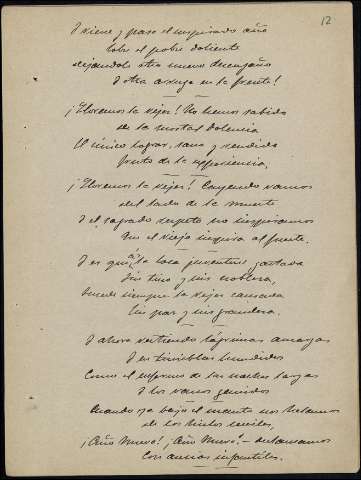 12
I viene y pasa el inspirado año
sobre el pobre doliente
dejándole otro nuevo desengaño
I otra arruga en la frente!
¡Lloremos la vejez! No hemos sabido
de la mortal dolencia
El único lograr, sano y rendido
fruto de la experiencia.
¡Lloremos la vejez! Cayendo vamos
del lado de la muerte
I el sagrado respeto no inspiramos
Que el viejo inspira al fuerte.
I es que a la loca juventud gastada
Sin tino y sin nobleza,
Sucede siempre la vejez cansada
Sin paz y sin grandeza.
I ahora vertiendo lágrimas amargas
I en tinieblas hundidos
Como el enfermo de las noches largas
I los vanos gemidos
Cuando ya bajo el manto nos helamos
de los hielos seniles,
¡Año Nuevo! ¡Año Nuevo! – exclamamos
Con ansias infantiles.